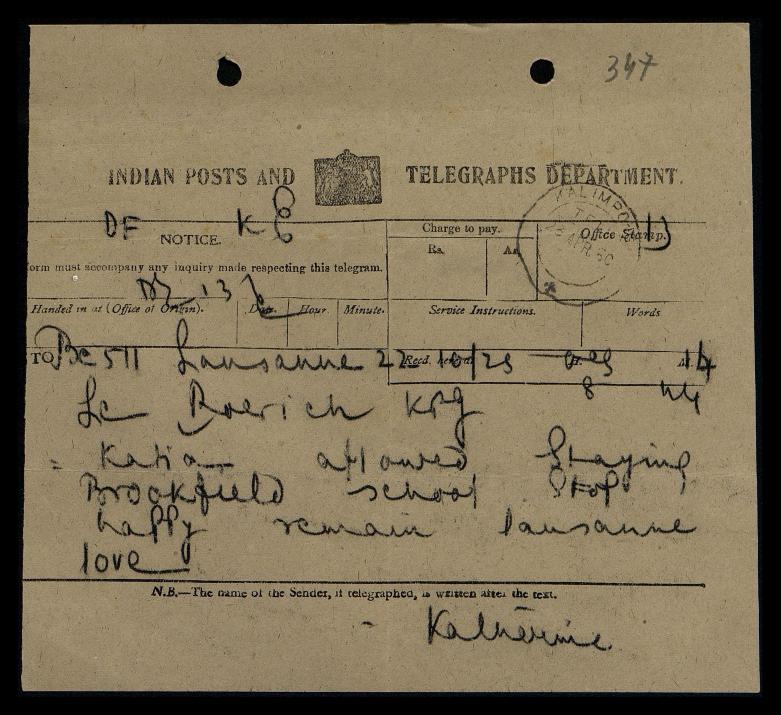 347
INDIAN POSTS AND TELEGRAPHS DEPARTMENT.
DF K
NOTICE.
Charge to pay.
Office Stamp.
13
Rs. As.
KALIMPONG
APR. 50
orm must accompany any inquiry made respecting this telegram.
13
Handed in at (Office of Origin). Date. Hour. Minute.
Service Instructions. Words
TO Bc 511 Lausanne 22 10/25 14
Recd. here at
8 44
Lc Roerich KPG
= Katia allowed Staying
Brookfield school Stop
happy remain lausanne
love
N.B.—The name of the Sender, if telegraphed, is written after the text.
- Katherine